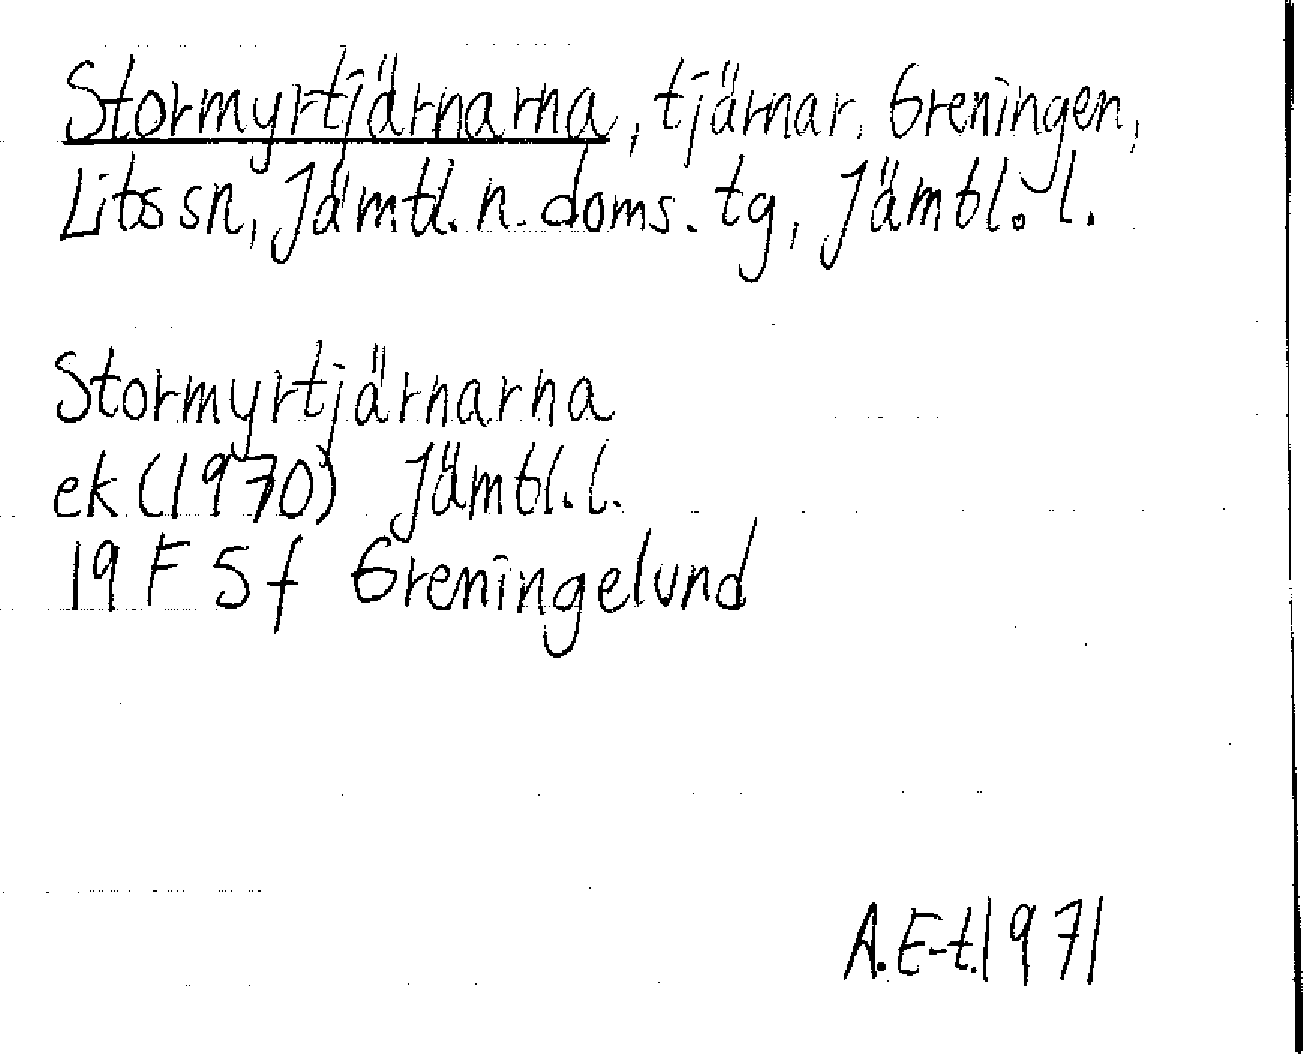 Stormyrtjärnarna, tjärnar, Greningen,
Lits sn, Jämtl. n. doms. tg, Jämtl. l.
Stormyrtjärnarna
ek (1970) Jämtl. l.
19 F 5 f Greningelund
A. E-t. 1971